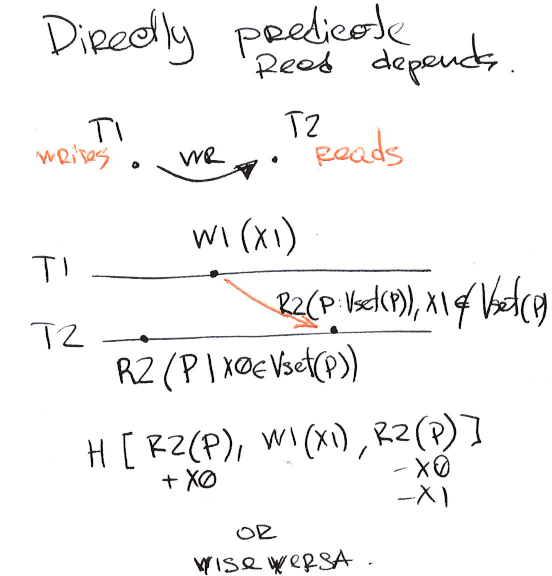 Directly predicate
Read depends.
T1 T2
writes WR Reads
W1(X1)
T1
R2(P:Vset(P)), X1∉Vset(P)
T2
R2(P|X0∈Vset(P))
H[R2(P), W1(X1), R2(P)]
+X0 -X0
-X1
OR
WISE WERSA.